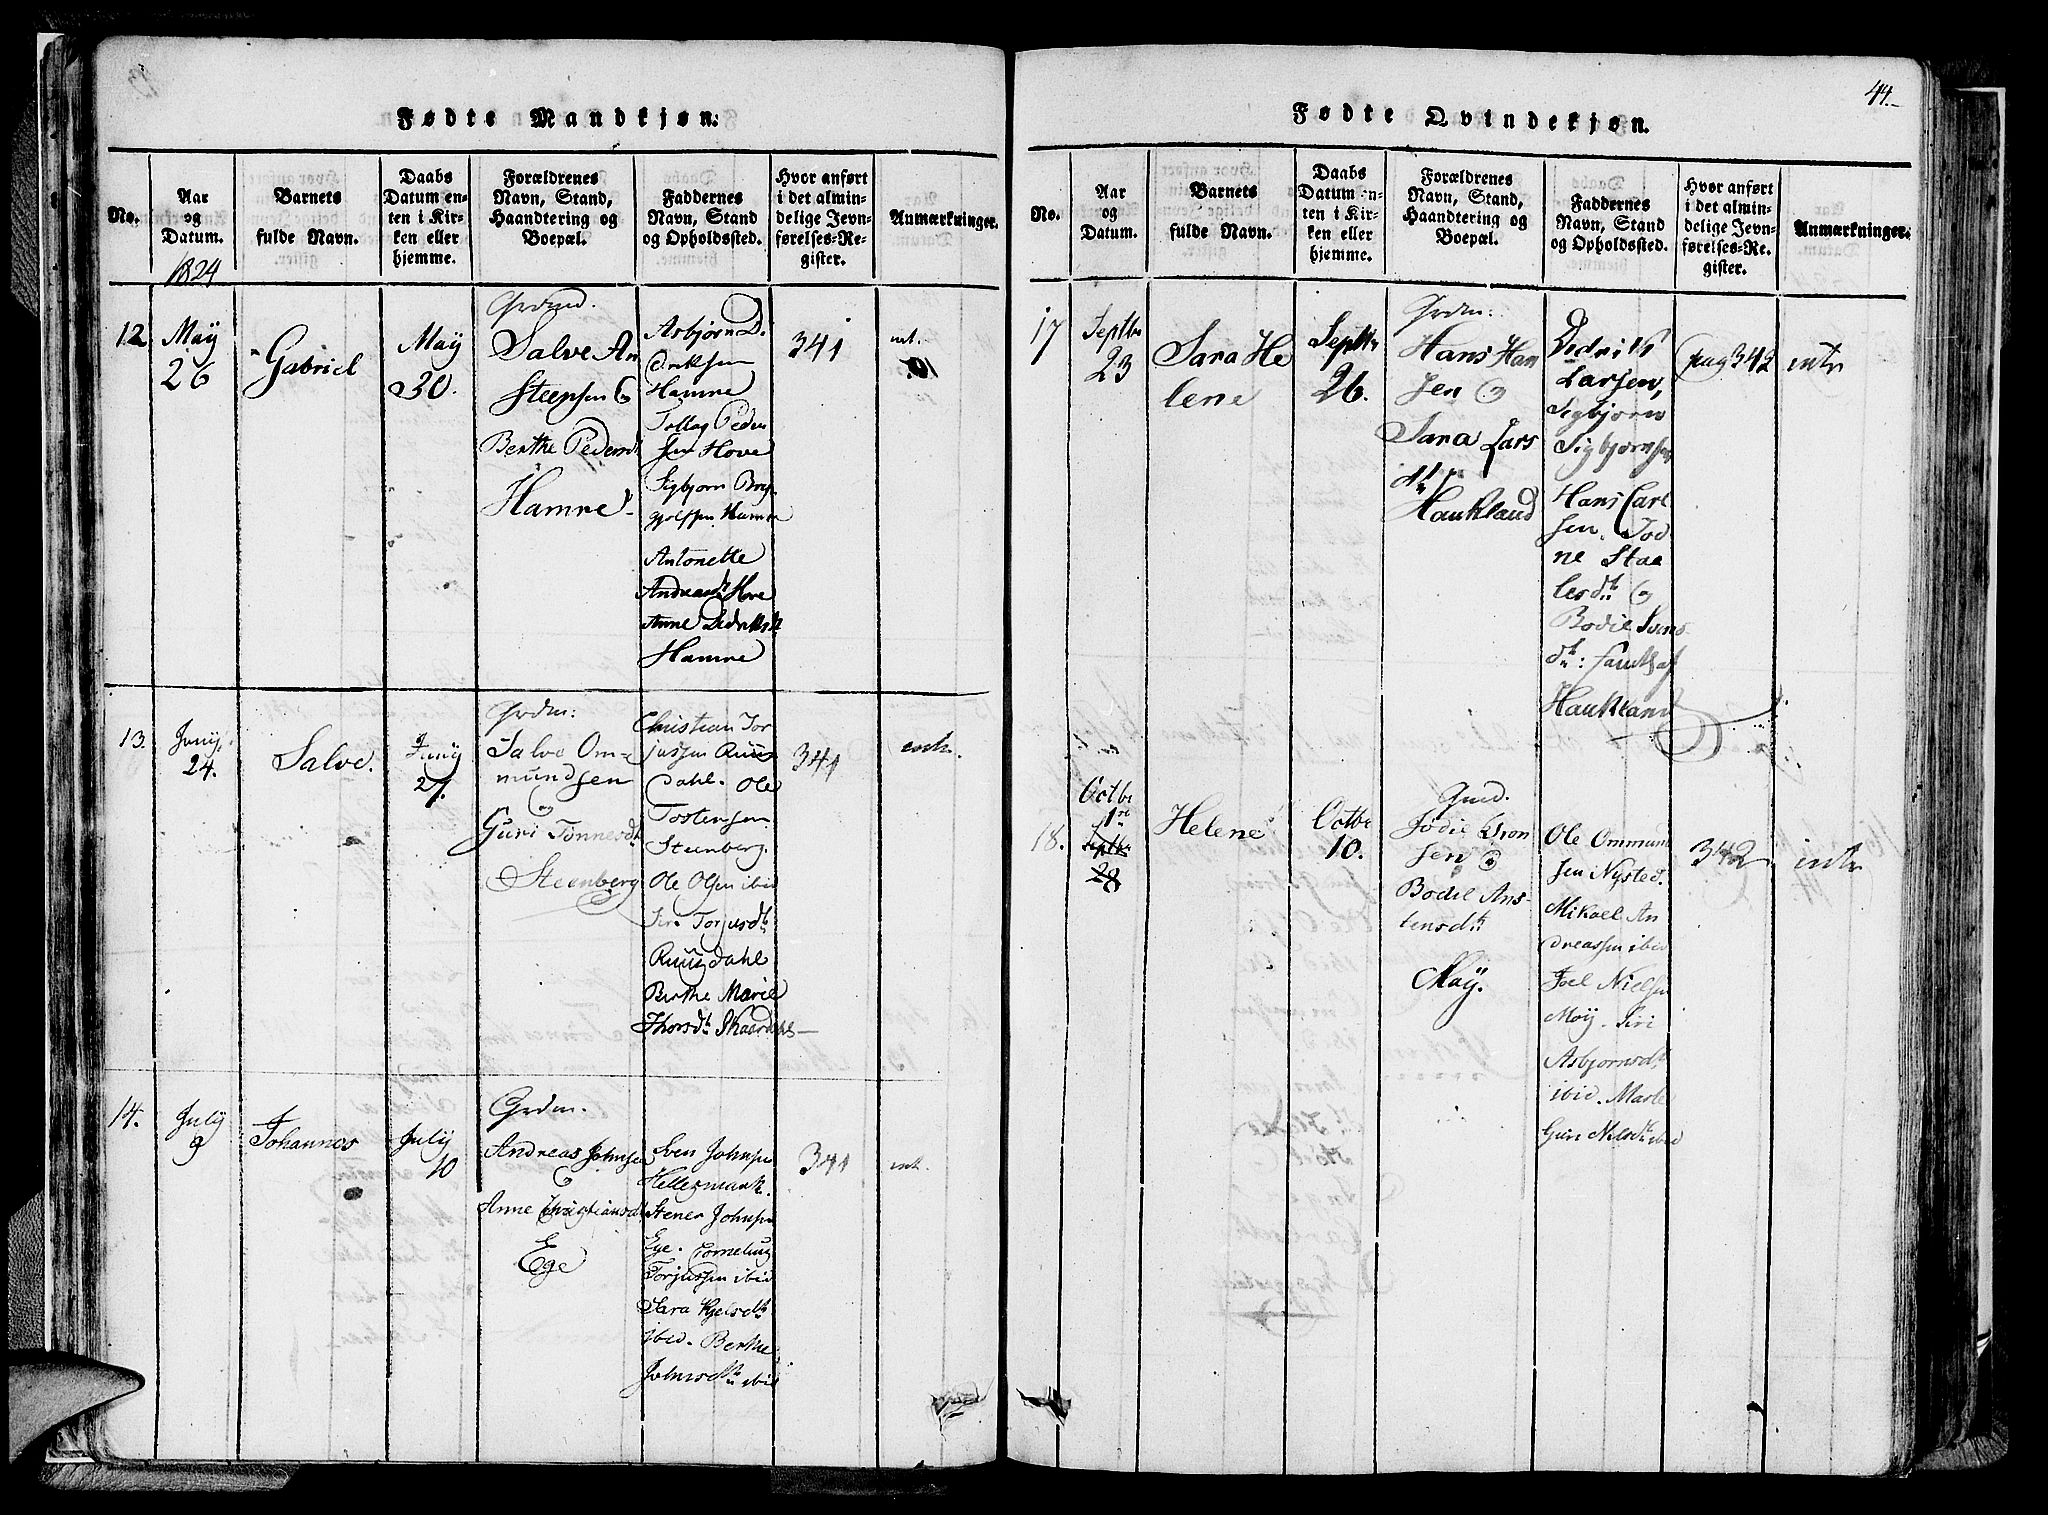 44.
Fødte Mandkjøn.
No.
Aar
og
Datum.
1824
Barnets
fulde Navn.
Daabs
Datum en-
ten i Kir-
ken eller
hjemme.
Forældrenes
Navn, Stand,
Haandtering og
Boepæl.
Faddernes
Navn, Stand
og Opholdssted.
Hvor anført
i det almin-
delige Jevn-
førelses-Re-
gister.
Anmærkninger.
12
May
26
Gabriel
May
30.
Grdmd.
Salve An
Steensen &
Berthe Pedersd
Hamre
Asbjørn D.
driksen
Hamre
Tollag Peder
sen Hove
Sigbjorn Bry
Hamre
Antonette
Andreasdt Hove
Anne Didriksdt
Hamre
341
int.
13.
Junÿ
24.
Salve.
Junÿ
27.
Grdm:
Salve Om-
mundsen
&
Guri Tønnesdt
Steenberg
Christian Tor
jussen Ruus
dahl. Ole
Tostensen
Steenberg.
Ole Olsen ibid
Siri Torjusdt
Ruusdahl
Berthe Marie
Thorsdt Skaardahl
341
int.
14.
July
9
Johannes
July
10
Grdm.
Andreas Johnse
&
Anne Christiansdt
Ege
Sven Johnsen
Hellesmark.
Stener Johnsen
Ege. Cornelius
Torjussen ibid
Sara Kjelsdt
ibid. Berthe
Johnsdtr ibid
341
int.
Fødte Qvindekjøn.
No.
Aar
og
Datum.
Barnets
fulde Navn.
Daabs
Datum en-
ten i Kir-
ken eller
hjemme.
Forældrenes
Navn, Stand,
Haandtering og
Boepæl.
Faddernes
Navn, Stand
og Opholdssted.
Hvor anført
i det almin-
delige Jevn-
førelses-Re-
gister.
Anmærkninger.
17
Septbr
23
Sara He
lene
Septbr
26.
Grdm:
Hans Han
sen &
Sara Lars
dtr
Haukland
Didrik
Larsen,
Sigbjorn
Sigbjornsen
Hans Carl
sen. Tod
ne Staa
lesdtr &
Bodil Svens
dtr: samtl af
Haukland
pag 342
intr
18.
Octbr
1ste
Septbr
28
Helene
Octbr
10.
Gmd.
Jodie
sen &
Bodil Ans-
tensdtr
Moÿ.
Ole Ommund
sen Nysted.
Mikael An
dreassen ibid
Joel Nielsen
Moÿ. Siri
Asbjornsdtr
ibid. Marte
Guri Nilsdtr ibid
342
intr